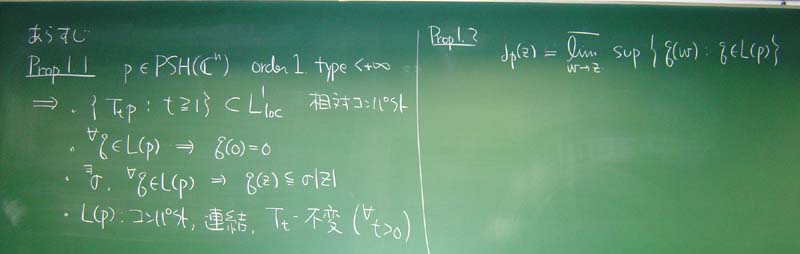 あらすじ
Prop 1.1 p∈PSH(ℂⁿ) order 1 type <+∞
⇒ ・{T_t p : t≧1} ⊂ L¹_loc 相対コンパクト
・∀q∈L(p) ⇒ q(0)=0
・∃σ, ∀q∈L(p) ⇒ q(z)≦σ|z|
・L(p): コンパクト, 連結, T_t-不変 (∀t>0)
Prop 1.2 (z) = \overline{lim}_{w→z} sup {q(w) : q∈L(p)}